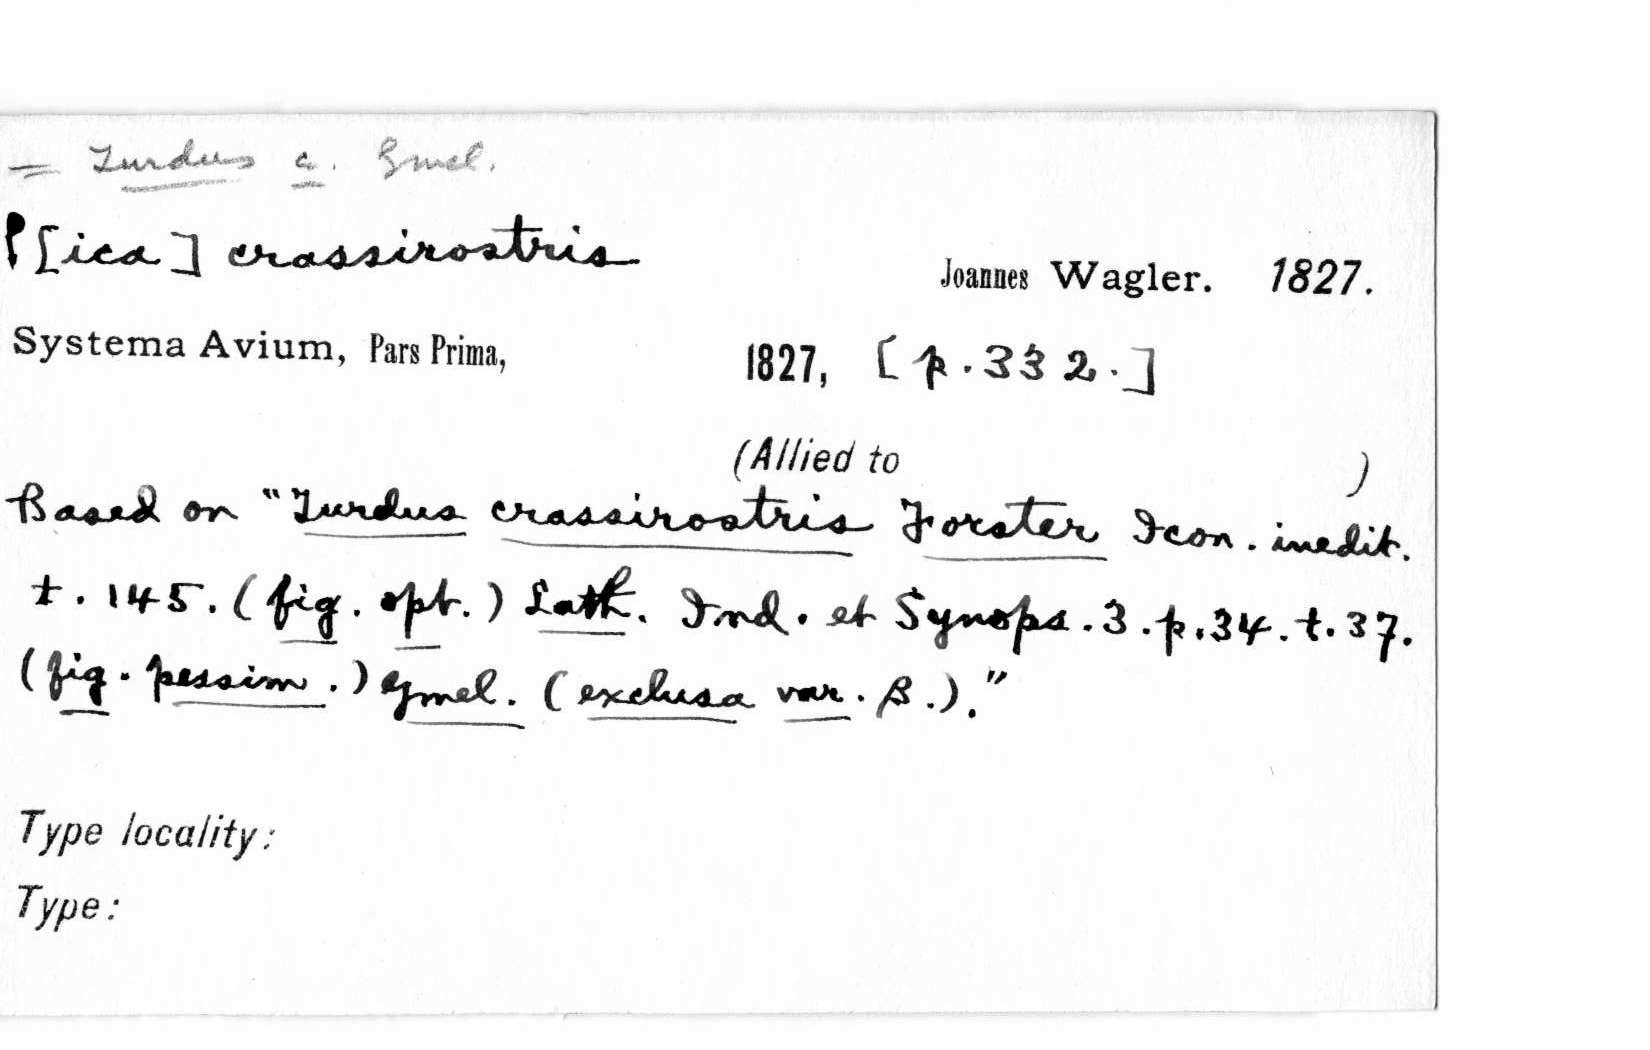 = Turdus c. Gmel.
P[ica] crassirostris
Joannes Wagler. 1827.
Systema Avium, Pars Prima, 1827, [p.332.]
(Allied to )
Based on "Turdus crassirostris Forster Icon. inedit.
t. 145. (fig. opt.) Lath. Ind. et Synops. 3. p. 34. t. 37.
(fig. pessim.) Gmel. (exclusa var. β.)."
Type locality:
Type: